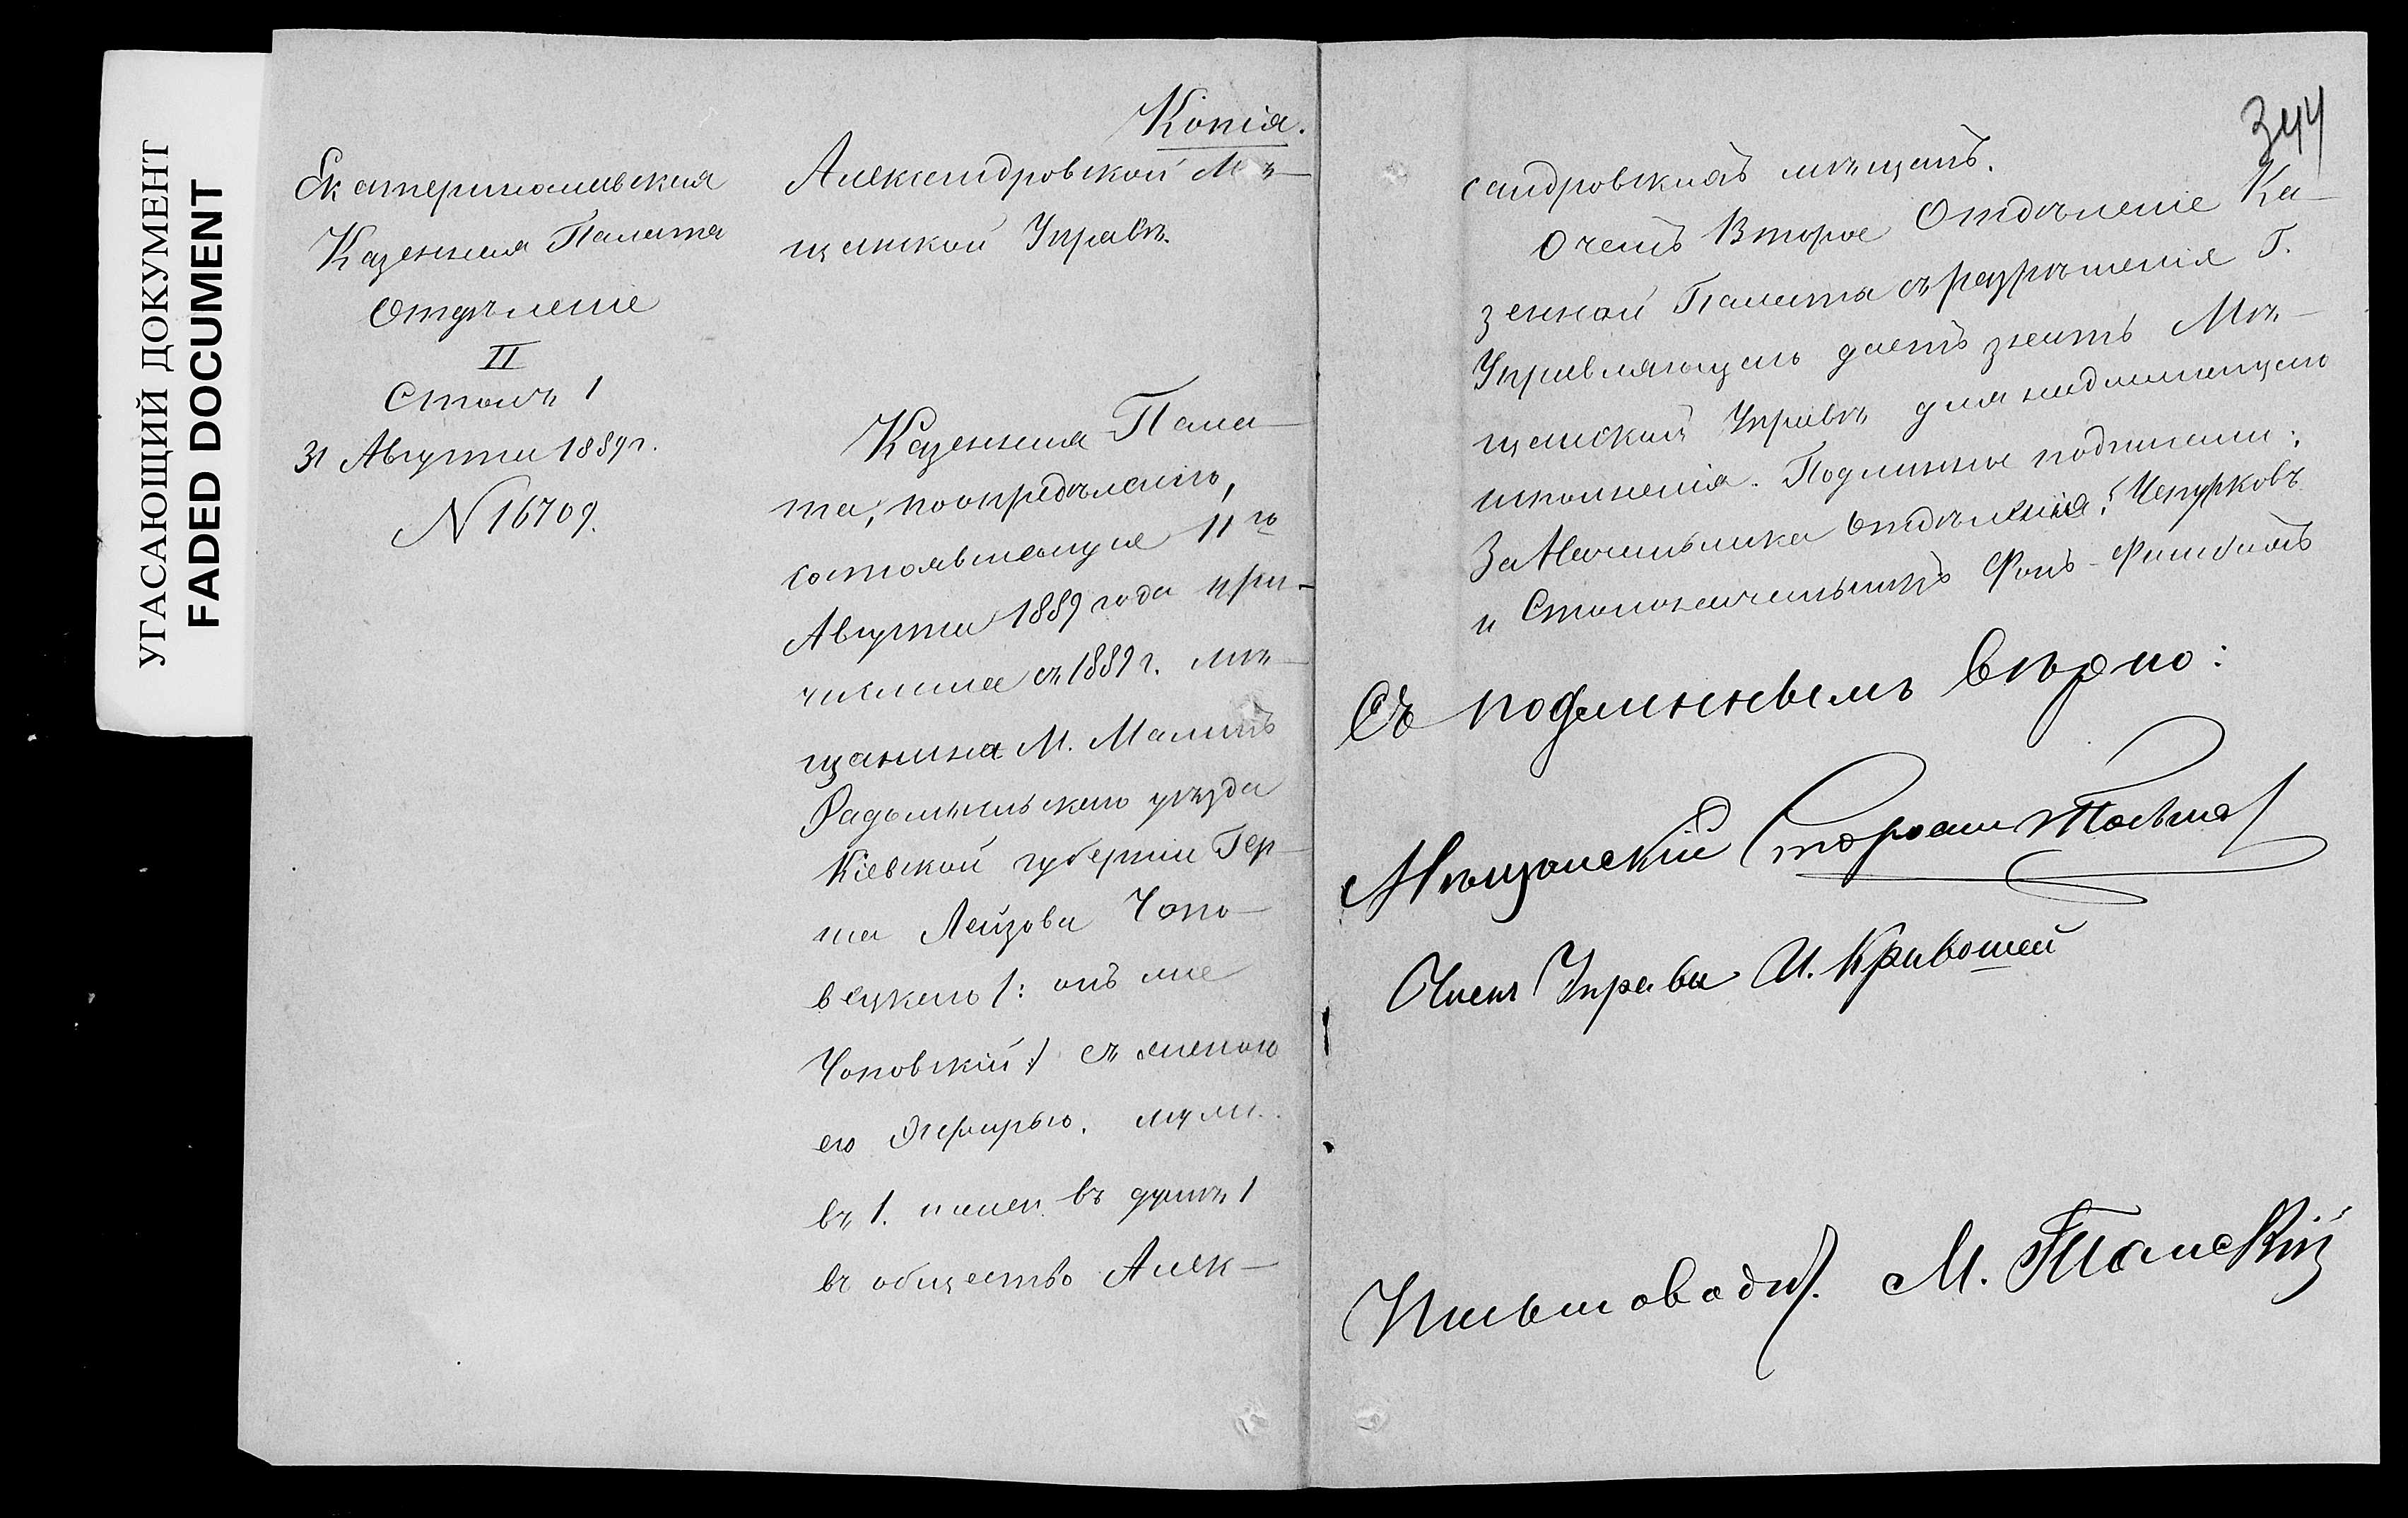 УГАСАЮЩИЙ ДОКУМЕНТ
FADED DOCUMENT
Копія.
Екатеринославская
Казенная Палата
Отдѣленіе
II
Столъ 1
31 Августа 1889 г.
N 16709.
Александровской Мѣ-
щанской Управѣ.
Казенная Пала-
та, по опредѣленію,
состоявшемуся 11го
Августа 1889 года при-
числила съ 1889 г. мѣ-
щанина М. Малинъ
Радомысльскаго уѣзда
Кіевской губерніи Гер-
ша Лейзова Чопо-
вецкаго /: онъ же
Чоповскій :/ съ женою
его Эсфирью, муж.
въ 1. жен. въ душѣ 1
въ общество Алек-
344
сандровскихъ мѣщанъ.
О чемъ Второе Отдѣленіе Ка-
зенной Палаты съ разрѣшенія Г.
Управляющаго даетъ знать Мѣ-
щанской Управѣ для надлежащаго
исполненія. Подлинное подписали:
За Начальника Отдѣленія: Чепурковъ
и Столоначальникъ Фонъ-
Съ подлиннымъ вѣрно:
Мѣщанскій Староста
Членъ Управы И. Кривошей
Письмовод. М.